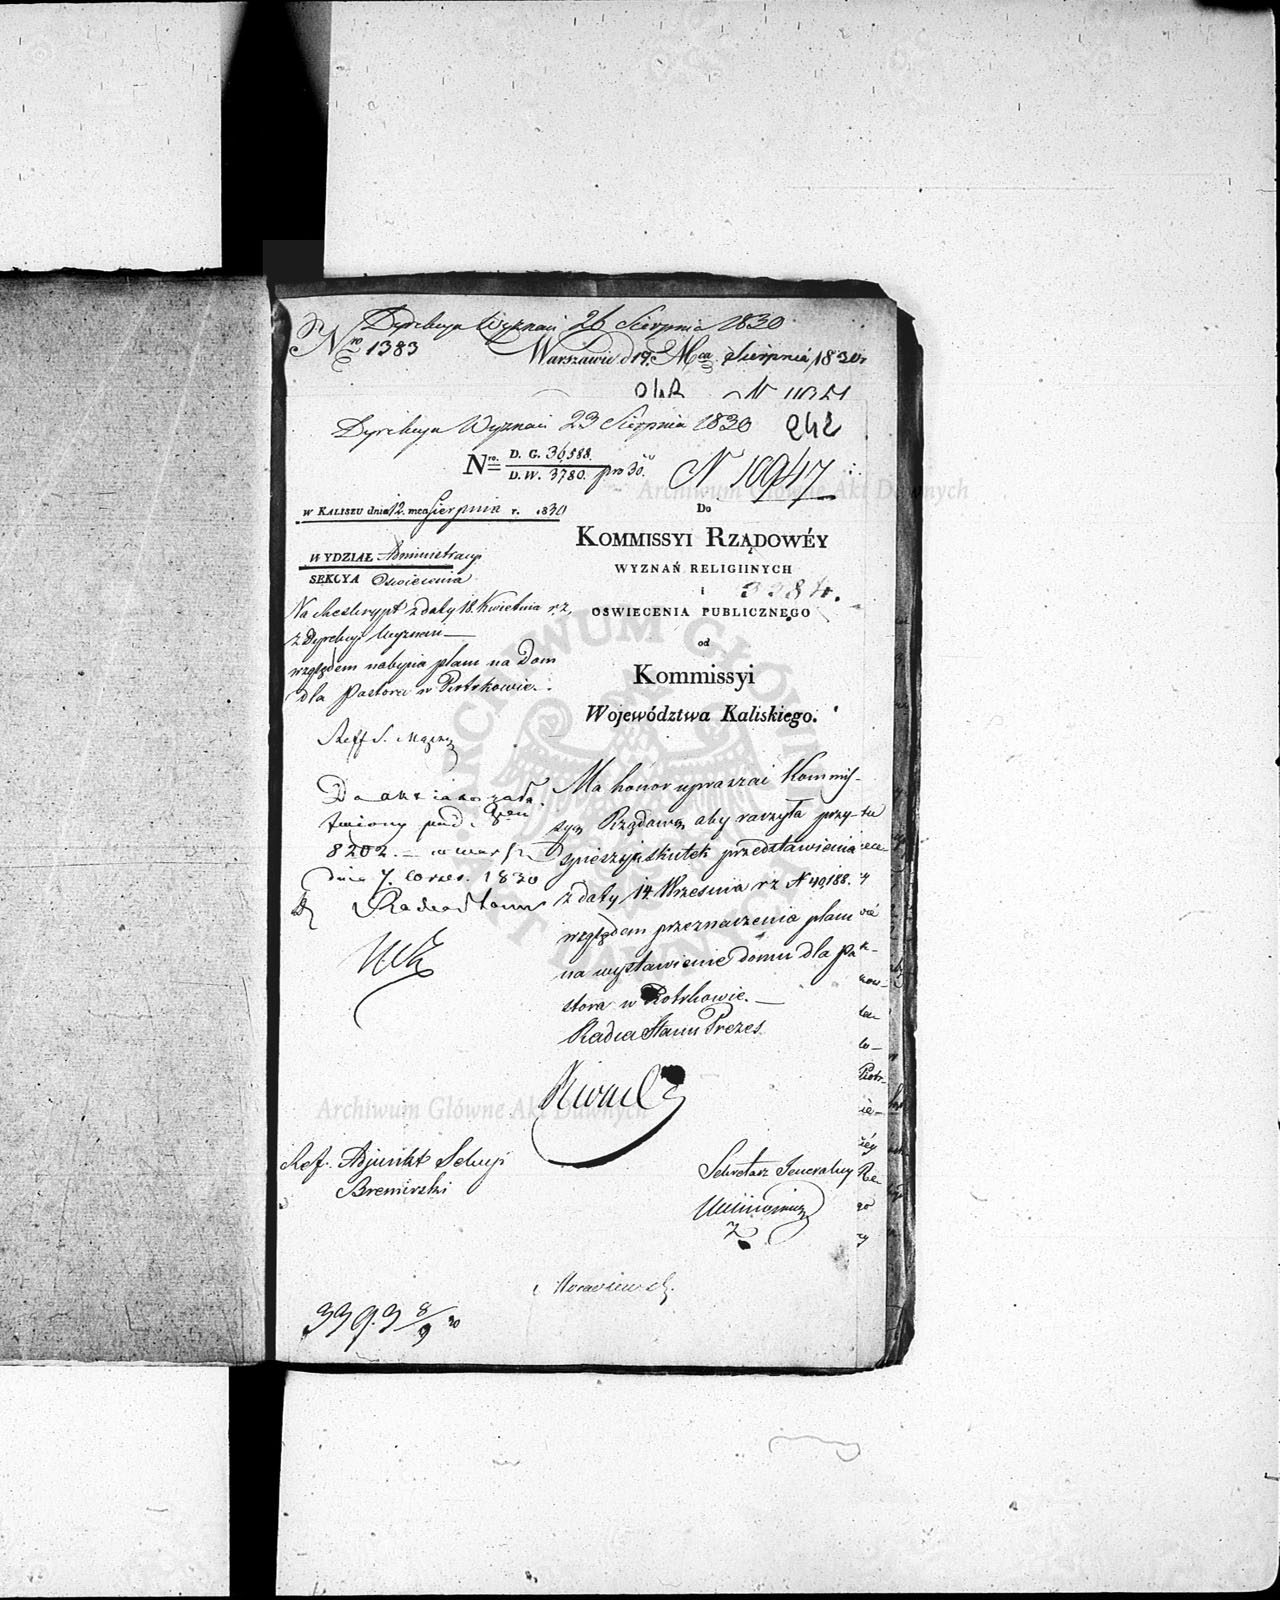 Dyrekcya Wyznań 26 Sierpnia 1830
Nro 1383
Warszawie d 19. Mca Sierpnia 1830.
N 11351
Dyrekcya Wyznań 23 Sierpnia 1830
242
Nro. D. G. 36588.
D. W. 3780. pro 30.
N 10947
W KALISZU dnia 12. mca Sierpnia r. 1830
Do
KOMMISSYI RZĄDOWÉY
WYZNAŃ RELIGIINYCH
i
3384.
OSWIECENIA PUBLICZNEGO
od
Kommissyi
Województwa Kaliskiego.
WYDZIAŁ Administracyi
SEKCYA Oswiecenia
Na Reskrypt z daty 18. Kwietnia r. z.
z Dyrekcyi Wyznań
względem nabycia placu na Dom
dla Pastora w Piotrkowie.
Reff S.
Do akt iako zała
twiony pod
8202.
dnia 7. Wrześ. 1830
Radca Stanu
Ma honor upraszać Kommis-
syą Rządową aby raczyła przy-
spieszyć skutek przedstawienia
z daty 14 Wrzesnia r z N 40,188.
względem przeznaczenia placu
na wystawienie domu dla Pa
stora w Piotrkowie.
Radca Stanu Prezes
Ref. Adjunkt Sekcyi
Sekretarz Jeneralny
3393 8/9 30
Archiwum Główne Akt Dawnych
Archiwum Główne Akt Dawnych
ARCHIWUM GŁÓWNE AKT DAWNYCH